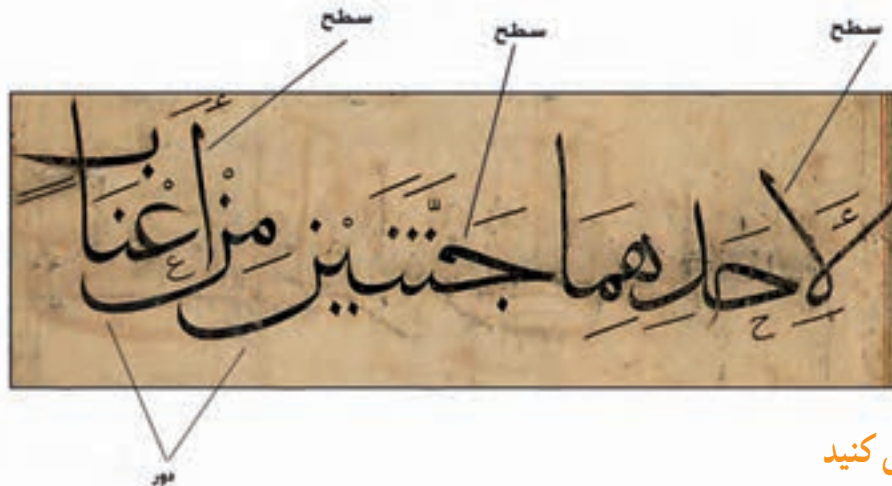 سطح
سطح
سطح
لِأَحَدِهِمَا جَنَّتَيْنِ مِنْ أَعْنَابٍ
دور
کنید